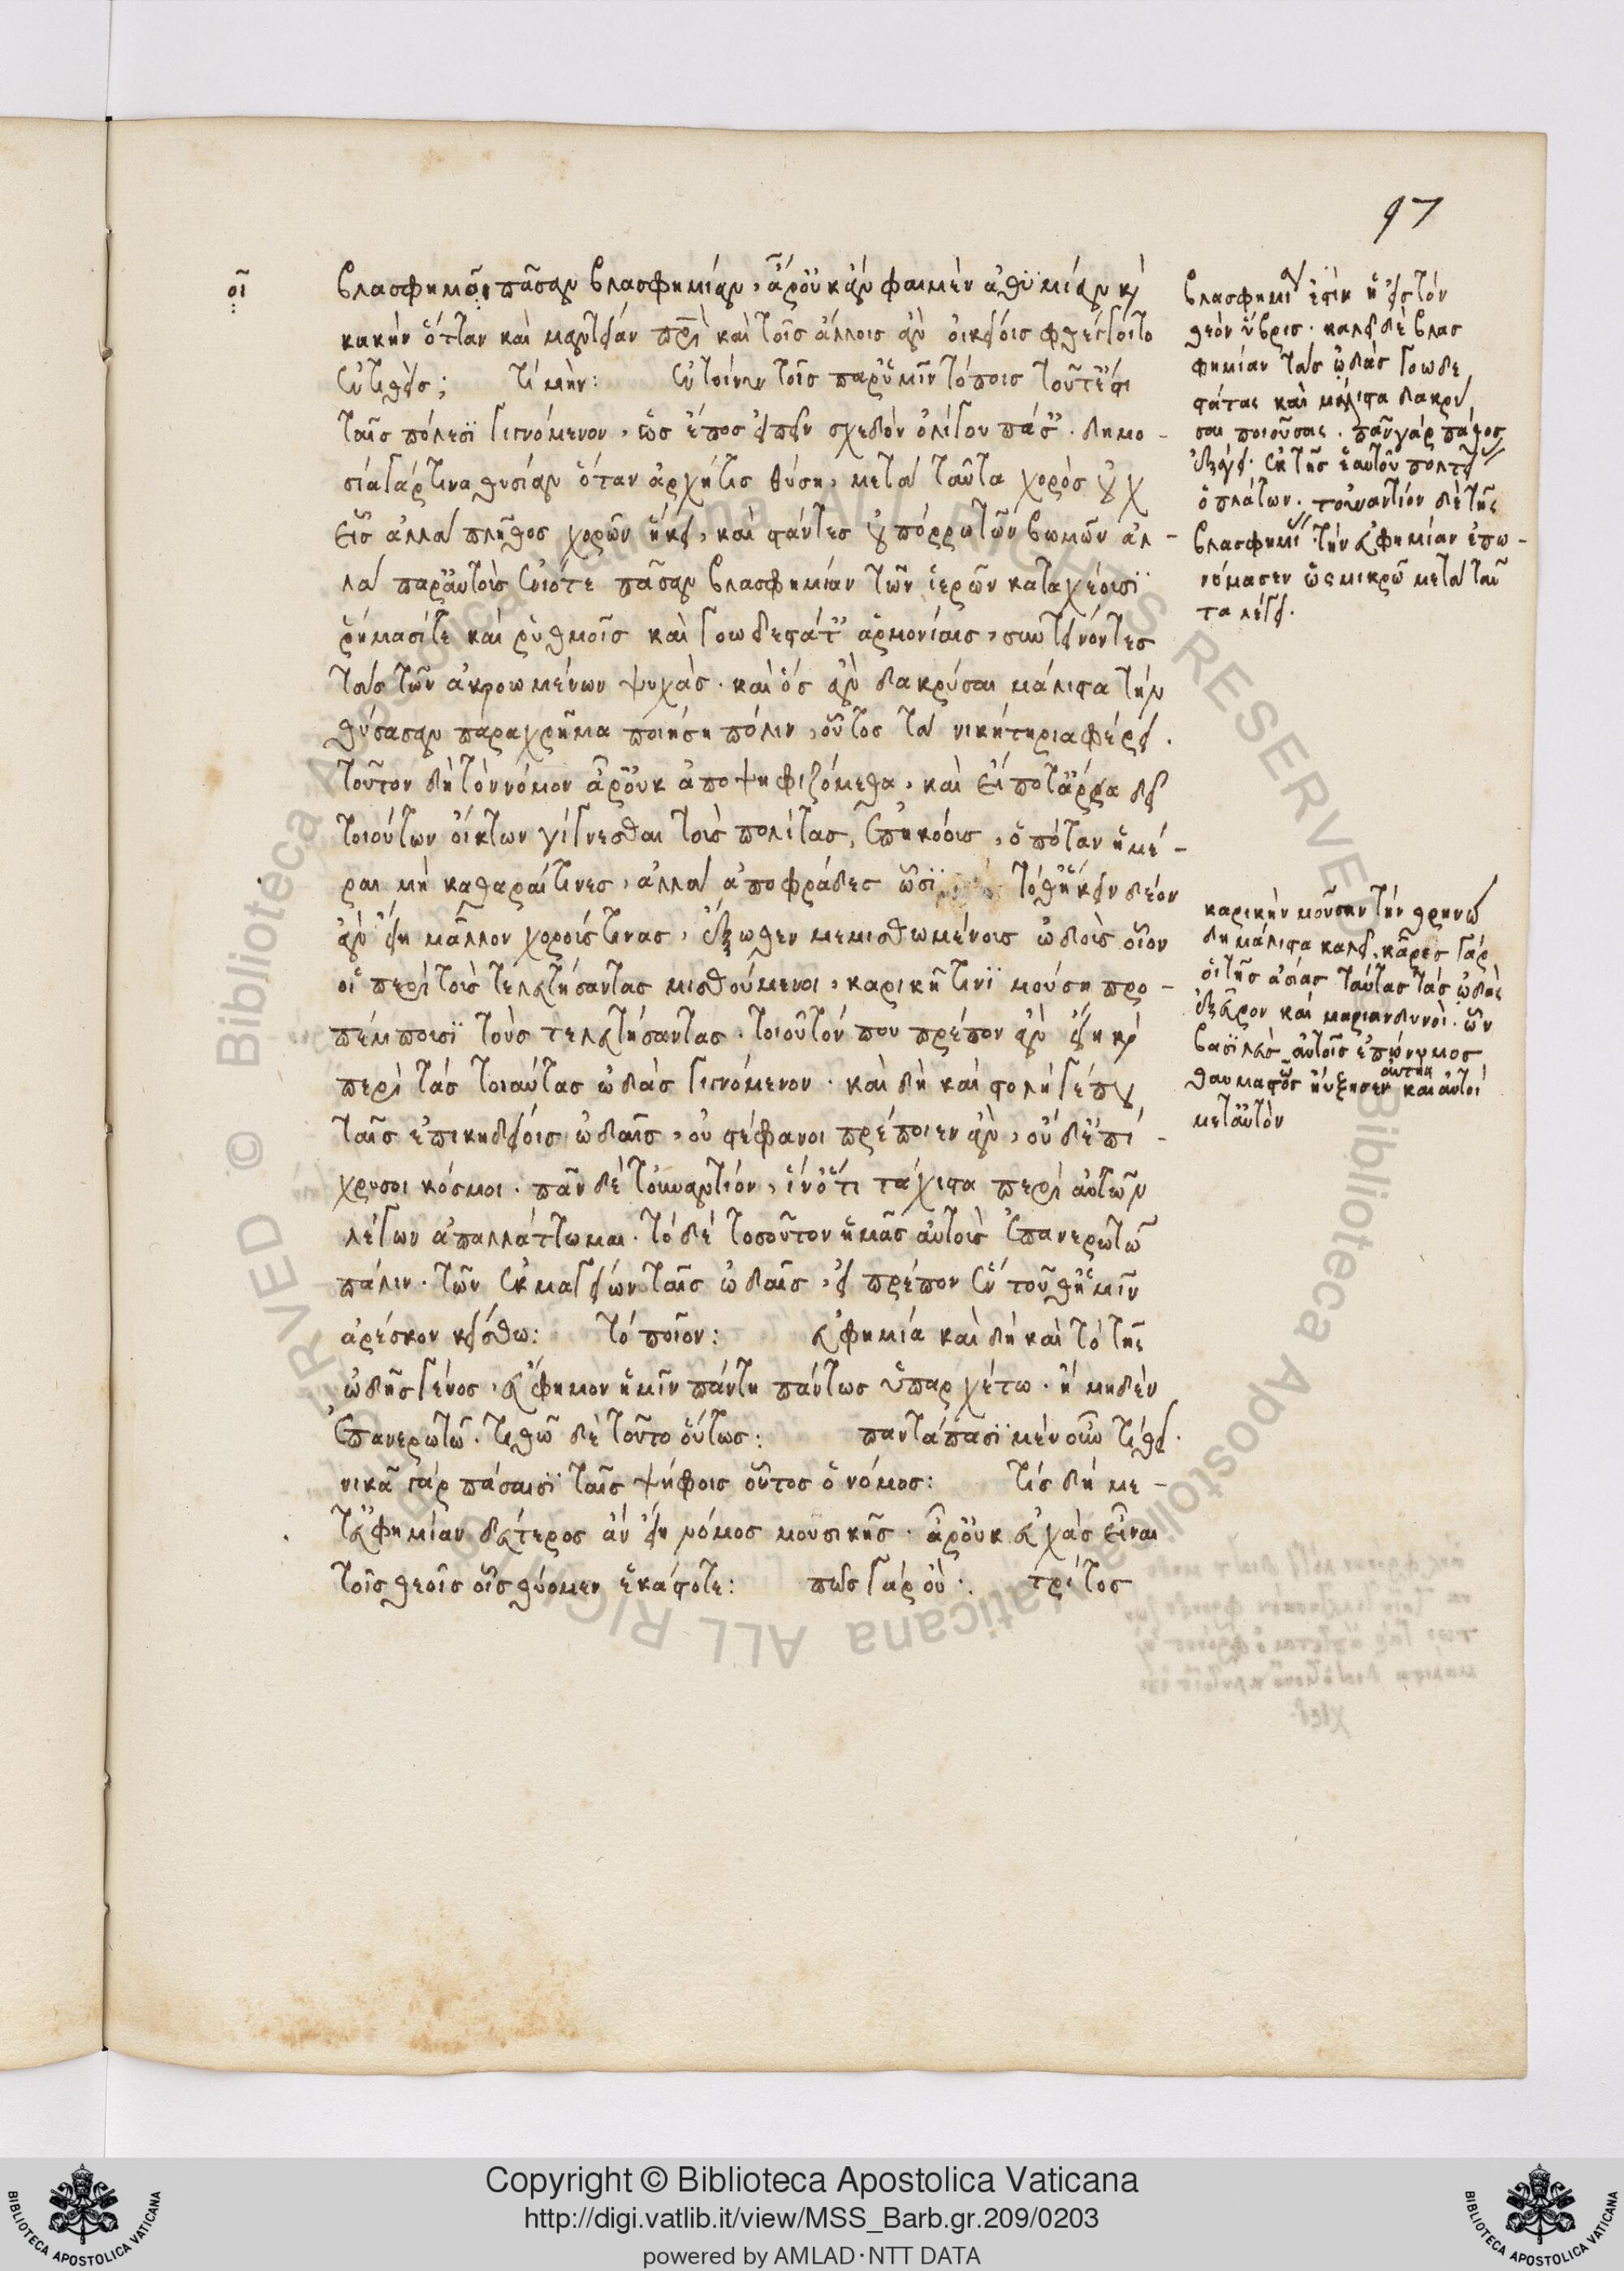 97
οῖ
βλασφημοῖ πᾶσαν βλασφημίαν, ἆρ' οὐκ ἂν φαιμὲν ἀθυμίαν κὶ
κακὴν ὄτταν καὶ μαντείαν πρὶ καὶ τοῖς ἄλλοις ἂν οἰκείοις φθέγγοιτο
ἐντιθείς; τί μήν: ἐν τοίνυν τοῖς παρ' ἡμῖν τόποις τοῦτ' ἔστι
ταῖς πόλεσι γιγνόμενον, ὡς ἔπος εἰπεῖν σχεδὸν ὀλίγου πάσ. δημο-
σίᾳ γάρ τινα θυσίαν ὅταν ἀρχή τις θύσῃ, μετὰ ταῦτα χορὸς οὐχ
εἷς ἀλλὰ πλῆθος χορῶν ἥκει, καὶ στάντες οὐ πόρρω τῶν βωμῶν ἀλ-
λὰ παρ' αὐτοὺς ἐνίοτε πᾶσαν βλασφημίαν τῶν ἱερῶν καταχέουσι
ῥήμασί τε καὶ ῥυθμοῖς καὶ γοωδεστάτ ἁρμονίαις, συντείνοντες
τὰς τῶν ἀκροωμένων ψυχάς. καὶ ὃς ἂν δακρῦσαι μάλιστα τὴν
θύσασαν παραχρῆμα ποιήσῃ πόλιν, οὗτος τὰ νικητήρια φέρει.
τοῦτον δὴ τὸν νόμον ἆρ' οὐκ ἀποψηφιζόμεθα, καὶ εἴ ποτ' ἄρα δεῖ
τοιούτων οἴκτων γίγνεσθαι τοὺς πολίτας ἐπηκόους, ὁπόταν ἡμέ-
ραι μὴ καθαραί τινες, ἀλλὰ ἀποφράδες ὦσι, τόθ' ἥκειν δέον
ἂν εἴη μᾶλλον χορούς τινας, ἔξωθεν μεμισθωμένους ᾠδοὺς οἷον
οἱ περὶ τοὺς τελευτήσαντας μισθούμενοι, καρικῇ τινὶ μούσῃ προ-
πέμπουσι τοὺς τελευτήσαντας. τοιοῦτόν που πρέπον ἂν εἴη κὶ
περὶ τὰς τοιαύτας ᾠδὰς γιγνόμενον. καὶ δὴ καὶ στολή γέ που
ταῖς ἐπικηδείοις ᾠδαῖς, οὐ στέφανοι πρέποιεν ἂν, οὐδ' ἐπί-
χρυσοι κόσμοι. πᾶν δὲ τοὐναντίον, ἵν' ὅτι τάχιστα περὶ αὐτῶν
λέγων ἀπαλλάττωμαι. τὸ δὲ τοσοῦτον ἡμᾶς αὐτοὺς ἐπανερωτῶ
πάλιν. τῶν ἐκμαγείων ταῖς ᾠδαῖς, εἰ πρέπον ἓν τοῦθ' ἡμῖν
ἀρέσκον κείσθω: τὸ ποῖον: εὐφημία καὶ δὴ καὶ τὸ τῆς
ᾠδῆς γένος, εὔφημον ἡμῖν πάντη πάντως ὑπαρχέτω. ἢ μηδὲν
ἐπανερωτῶ. τιθῶ δὲ τοῦτο οὕτως: παντάπασι μὲν οὖν τίθει.
νικᾷ γὰρ πάσαισι ταῖς ψήφοις οὗτος ὁ νόμος: τίς δὴ με-
τ' εὐφημίαν δεύτερος ἂν εἴη νόμος μουσικῆς. ἆρ' οὐκ εὐχὰς εἶναι
τοῖς θεοῖς οἷς θύομεν ἑκάστοτε: πῶς γὰρ οὔ: τρίτος
βλασφημία ἐστὶν ἡ εἰς τὸν
θεὸν ὕβρις. καλεῖ δὲ βλασ
φημίαν τὰς ᾠδὰς γοωδε
στάτας καὶ μάλιστα δακρύ
σαι ποιούσας. πᾶν γὰρ πάθος
ἐξάγει ἐκ τῆς ἑαυτοῦ πολιτεί
ὁ πλάτων. τοὐναντίον δὲ τῆς
βλασφημί τὴν εὐφημίαν ἐπω-
νόμασεν ὡς μικρῷ μετὰ ταῦ
τα λέγει.
καρικὴν μοῦσαν τὴν θρηνώ
δη μάλιστα καλεῖ. κᾶρες γάρ
οἱ τῆς ἀσίας ταύτας τὰς ᾠδὰς
ἐξεῦρον καὶ μαριανδυνοί. ὧν
βασιλεὺς αὐτοῖς ἐπώνυμος
θαυμαστῶς ηὔξησεν αὐτὴν καὶ αὐτοὶ
μετ' αὐτὸν
© Biblioteca Apostolica Vaticana ALL RIGHTS RESERVED
Copyright © Biblioteca Apostolica Vaticana
http://digi.vatlib.it/view/MSS_Barb.gr.209/0203
powered by AMLAD·NTT DATA
BIBLIOTECA APOSTOLICA VATICANA
BIBLIOTECA APOSTOLICA VATICANA